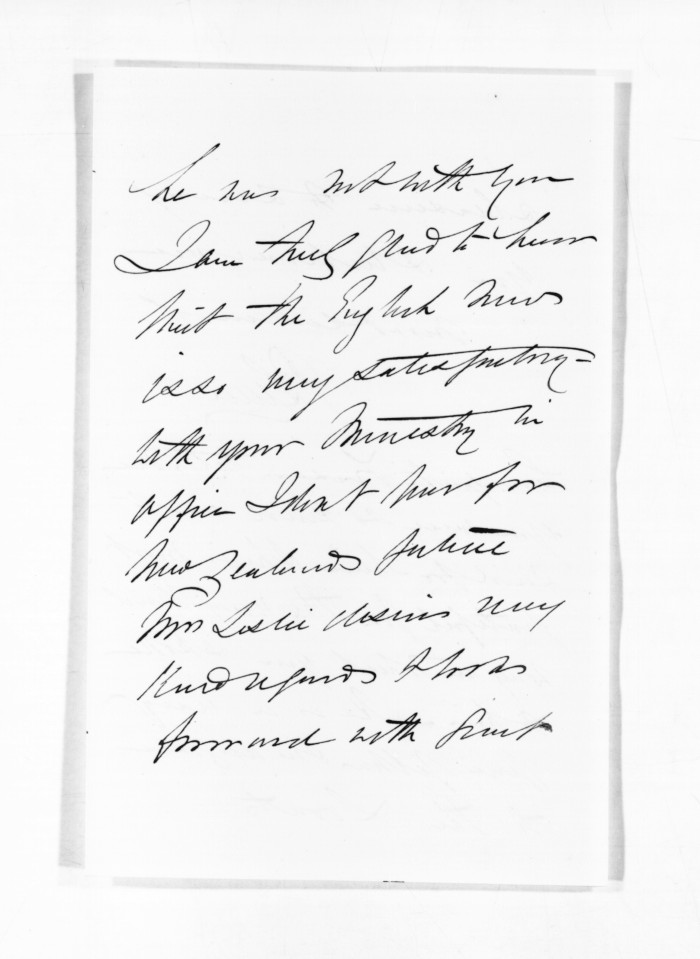 he was not with you
I am truly glad to hear
that the English News
is so very satisfactory -
with your Ministry in
office I dont fear for
New Zealands future
Mrs Leslie desires very
Kind regards & looks
forward with great